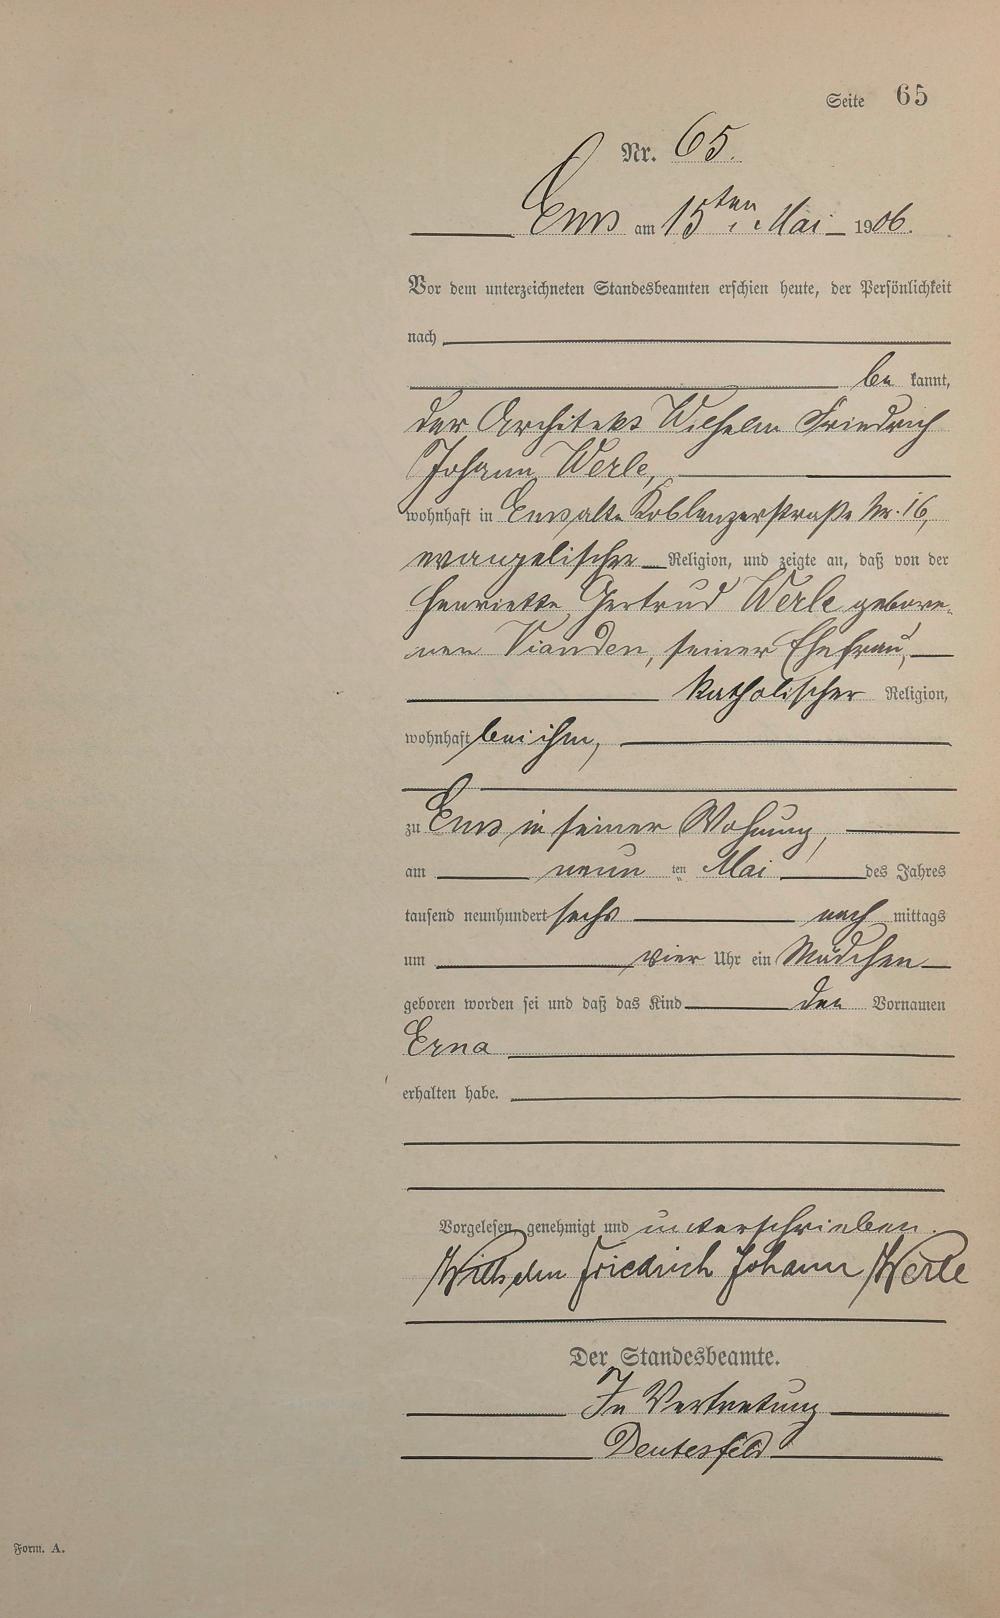 Seite 65
Nr. 65.
Ems am 15ten Mai 1906.
Vor dem unterzeichneten Standesbeamten erschien heute, der Persönlichkeit
nach
be kannt,
der Architekt Wilhelm Friedrich
Johann Werle,
wohnhaft in Ems, alte Koblenzerstraße Nr. 16,
evangelischer Religion, und zeigte an, daß von der
Henriette Gertrud Werle gebore-
nen Vianden, seiner Ehefrau,
katholischer Religion,
wohnhaft bei ihm,
zu Ems in seiner Wohnung,
am neun ten Mai des Jahres
tausend neunhundert sechs nach mittags
um vier Uhr ein Mädchen
geboren worden sei und daß das Kind den Vornamen
Erna
erhalten habe.
Vorgelesen, genehmigt und unterschrieben.
Wilhelm Friedrich Johann Werle
Der Standesbeamte.
In Vertretung
Deutesfeld
Form. A.